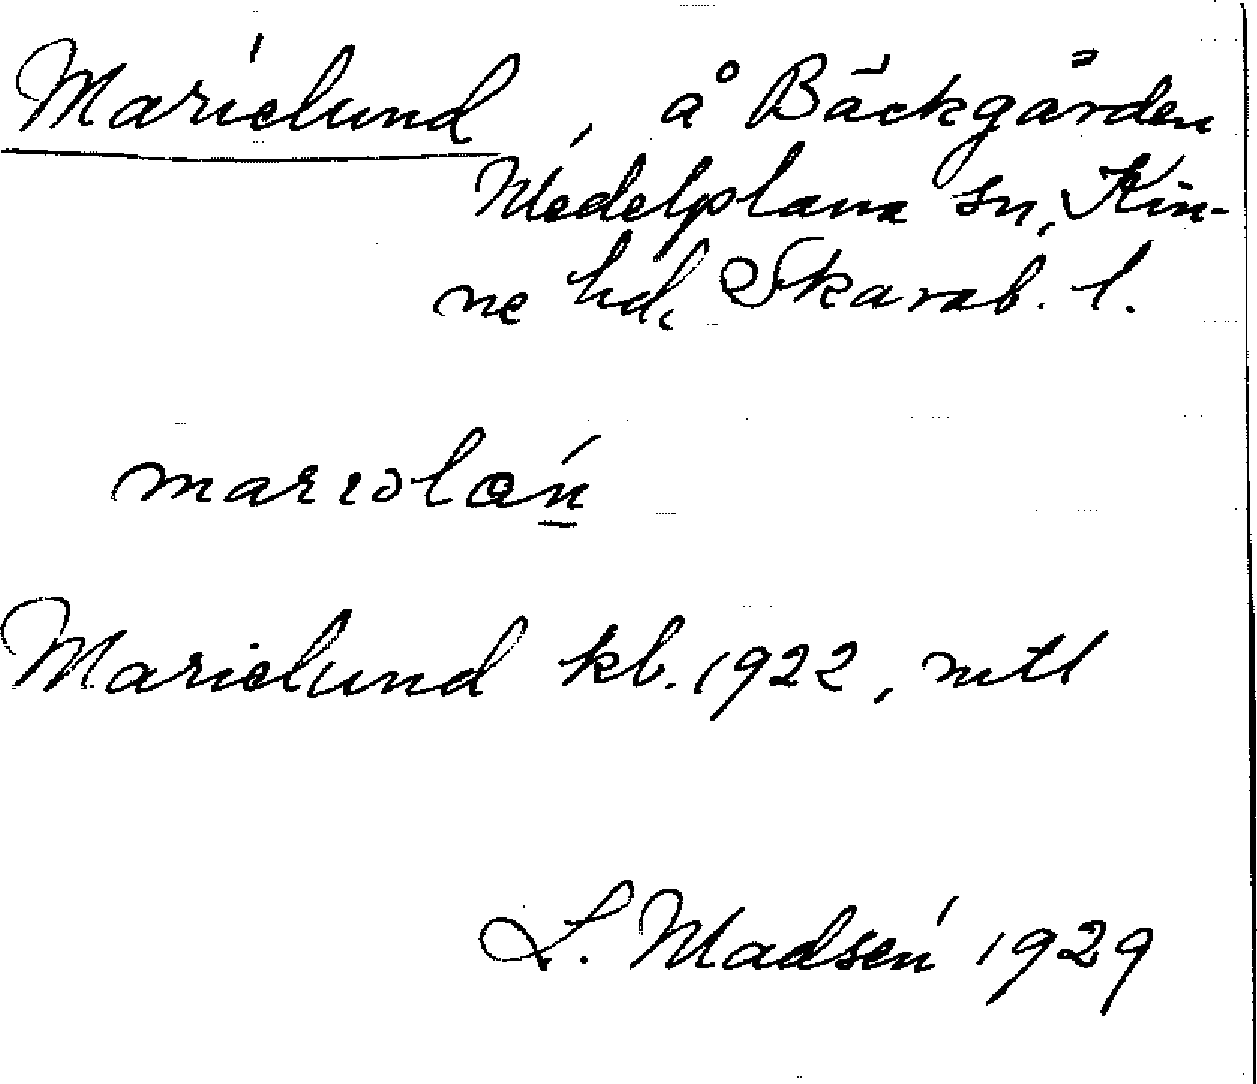 Marielund, å Bäckgården
Medelplana sn, Kin-
ne hd, Skarab. l.
Marielund kb. 1922, mtl
L. Madsén 1929